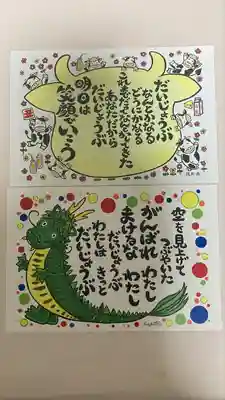 だいじょうぶ
なんとかなる
どうにかなる
これまでだってそうしてきた
あなただから
だいじょうぶ
明日は
笑顔でいこう
空を見上げて
つぶやいた
がんばれ わたし
まけるな わたし
だいじょうぶ
わたしは きっと
だいじょうぶ